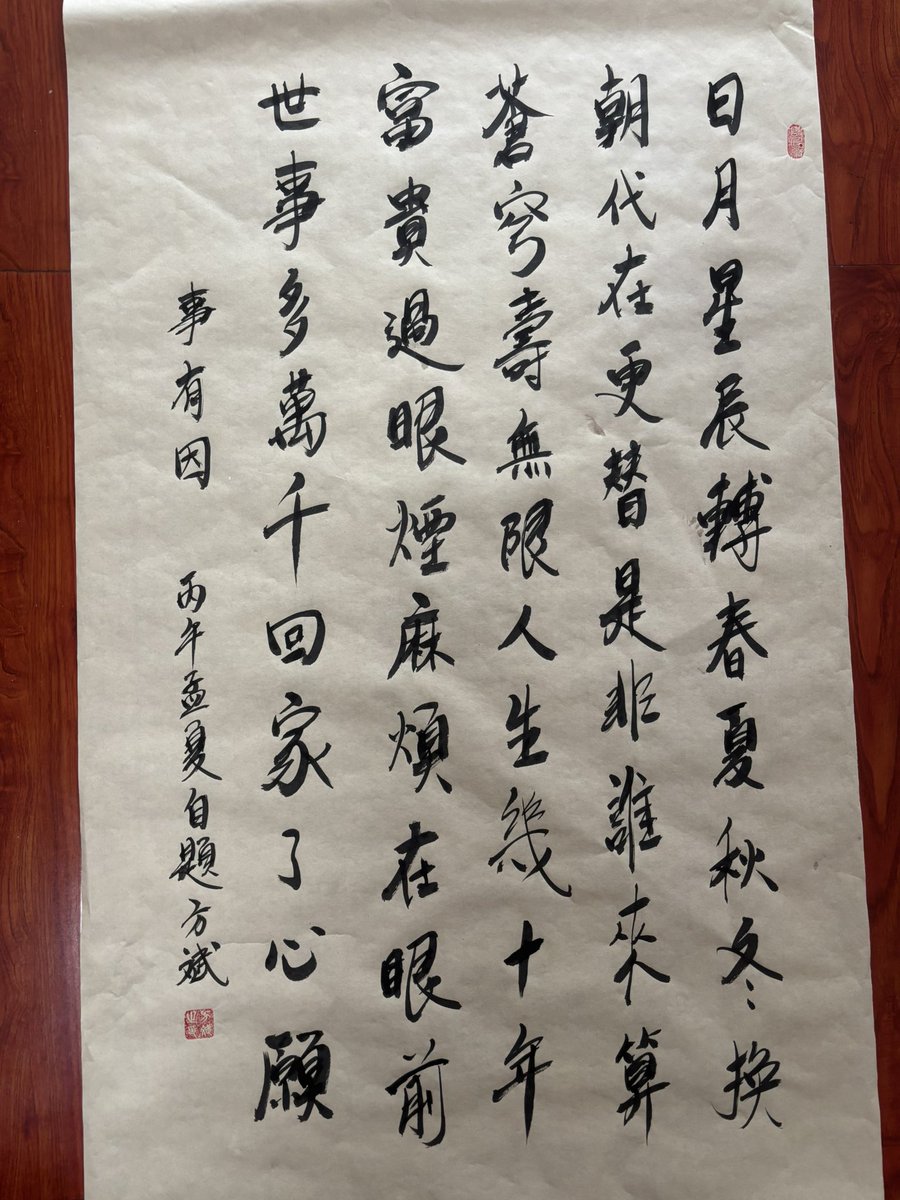 日月星辰轉春夏秋冬換
朝代在更替是非誰來算
蒼穹壽無限人生幾十年
富貴過眼煙麻煩在眼前
世事多萬千回家了心願
事有因
丙午孟夏自題方斌